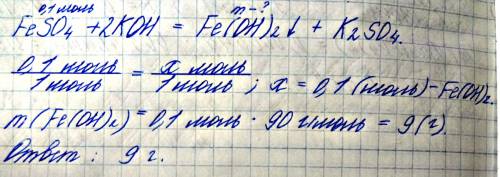 0,1 моль m-?
FeSO4 + 2KOH = Fe(OH)2↓ + K2SO4.
0,1 моль / 1 моль = x моль / 1 моль ; x = 0,1 (моль) - Fe(OH)2
m(Fe(OH)2) = 0,1 моль · 90 г/моль = 9 (г).
Ответ : 9 г.